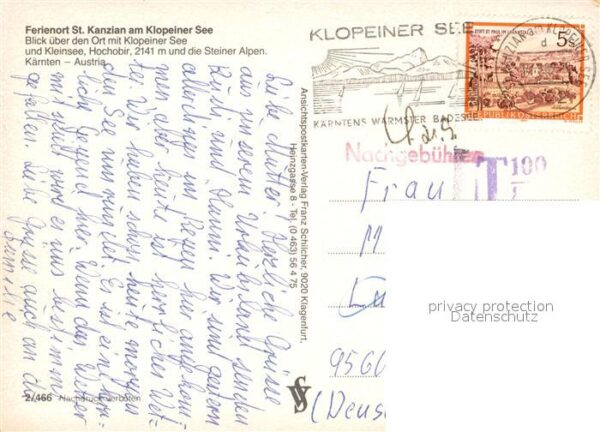 Ferienort St. Kanzian am Klopeiner See
Blick über den Ort mit Klopeiner See
und Kleinsee, Hochobir, 2141 m und die Steiner Alpen.
Kärnten – Austria
Liebe Mutter! Herzliche Grüße
aus unserem Urlaubsland senden
und Hanni. Wir sind gestern
allerdings im Regen hier angekom
men, aber heute ist herrliches Wet-
ter. Wir haben schon heute morgen
den See umrundet. Es ist eine herr-
liche Gegend hier. Wenn das Wetter
mitspielt wird es uns bestimmt
gefallen. Liebe Grüße auch an die
Familie
2/466 Nachdruck verboten
Ansichtspostkarten-Verlag Franz Schilcher, 9020 Klagenfurt,
Heinzgasse 8 - Tel. (0 463) 56 4 75
KLOPEINER SEE
KÄRNTENS WÄRMSTER BADESEE
5 S
REPUBLIK ÖSTERREICH
Nachgebühr
T 100
Frau
M
956
(Deus
privacy protection
Datenschutz